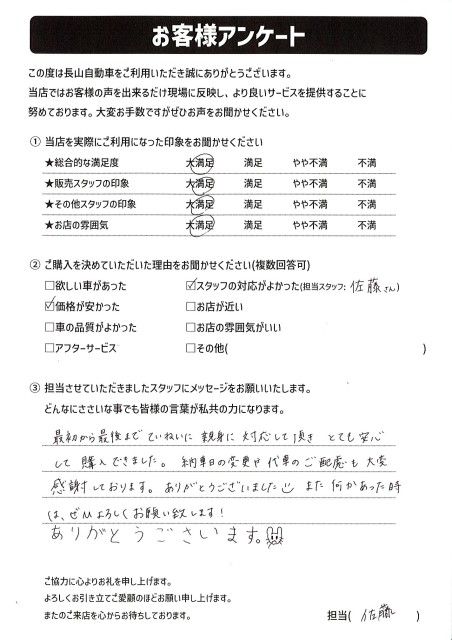 お客様アンケート
この度は長山自動車をご利用いただき誠にありがとうございます。
当店ではお客様の声を出来るだけ現場に反映し、より良いサービスを提供することに
努めております。大変お手数ですがぜひお声をお聞かせください。
① 当店を実際にご利用になった印象をお聞かせください
★総合的な満足度 大満足 満足 やや不満 不満
★販売スタッフの印象 大満足 満足 やや不満 不満
★その他スタッフの印象 大満足 満足 やや不満 不満
★お店の雰囲気 大満足 満足 やや不満 不満
② ご購入を決めていただいた理由をお聞かせください(複数回答可)
□欲しい車があった ☑スタッフの対応がよかった(担当スタッフ: 佐藤さん)
☑価格が安かった □お店が近い
□車の品質がよかった □お店の雰囲気がいい
□アフターサービス □その他( )
③ 担当させていただきましたスタッフにメッセージをお願いいたします。
どんなにささいな事でも皆様の言葉が私共の力になります。
最初から最後まで ていねいに 親身に 対応して頂き とても安心
して 購入できました。 納車日の変更や 代車の ご配慮も 大変
感謝しております。 ありがとうございました また 何かあった時
は、ぜひよろしくお願い致します!
ありがとうございます。
ご協力に心よりお礼を申し上げます。
よろしくお引き立てご愛顧のほどお願い申し上げます。
またのご来店を心からお待ちしております。 担当( 佐藤 )